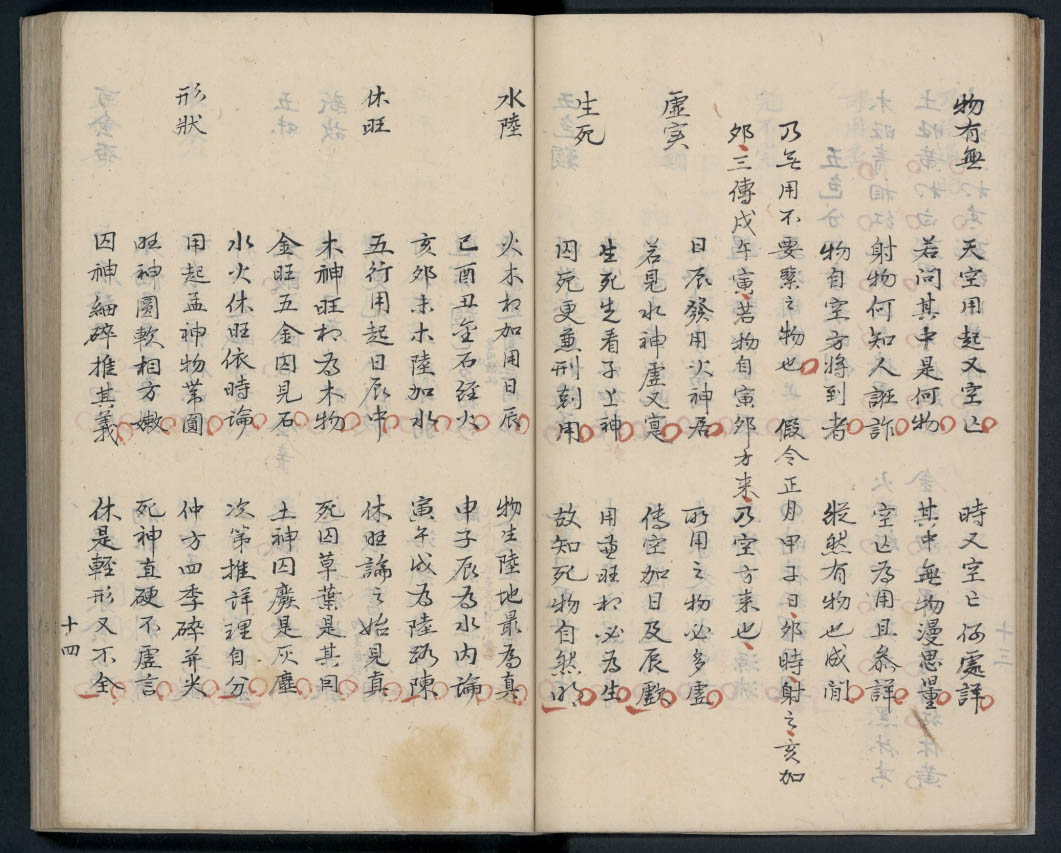 物有無
天空用起又空亡 時又空亡何處詳
若問其中是何物 其中無物漫思量
射物何知人誑詐 空亡為用且參詳
物自空方將到者 縱然有物也成閒
乃無用不要緊之物也 假令正月甲子日夘時射之亥加
夘三傳戌午寅若物自寅夘方來乃空方来也
虛实
日辰發用火神居 所用之物必多虛
若見水神虛又寔 傳空加日及辰戲
生死
生死先看子上神 用兼旺相必為生
囚死更兼刑剋用 故知死物自然明
水陸
火木相加用日辰 物生陸地最為真
巳酉丑金石經火 申子辰為水内論
亥夘未木陸加水 寅午戌為陸路陳
休旺
五行用起日辰中 休旺論之始見真
木神旺相為木物 死囚草葉是其同
金旺五金囚見石 土神囚廢是灰塵
水火休旺依時論 次第推詳理自分
形狀
用起孟神物帶圓 仲方四季碎并尖
旺神圓軟相方嫩 死神直硬不虛言
囚神細碎推其義 休是輕形又不全
十四